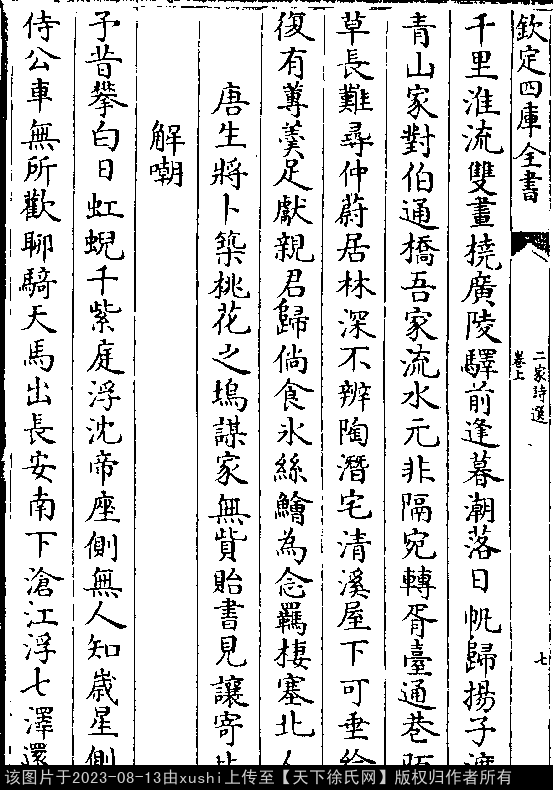 欽定四庫全書
二家詩選
卷上
七
千里淮流雙畫橈廣陵驛前逢暮潮落日帆歸揚子渡
青山家對伯通橋吾家流水元非隔宛轉胥臺通巷陌
草長難尋仲蔚居林深不辨陶潛宅清溪屋下可垂綸
復有蓴羮足獻親君歸倘食氷絲鱠為念羈棲塞北人
唐生將卜築桃花之塢謀家無貲貽書見讓寄此
解嘲
予昔攀白日虹蜺千紫庭浮沈帝座側無人知歲星側
侍公車無所歡聊騎天馬出長安南下滄江浮七澤還
该图片于2023-08-13由xushi上传至【天下徐氏网】版权归作者所有